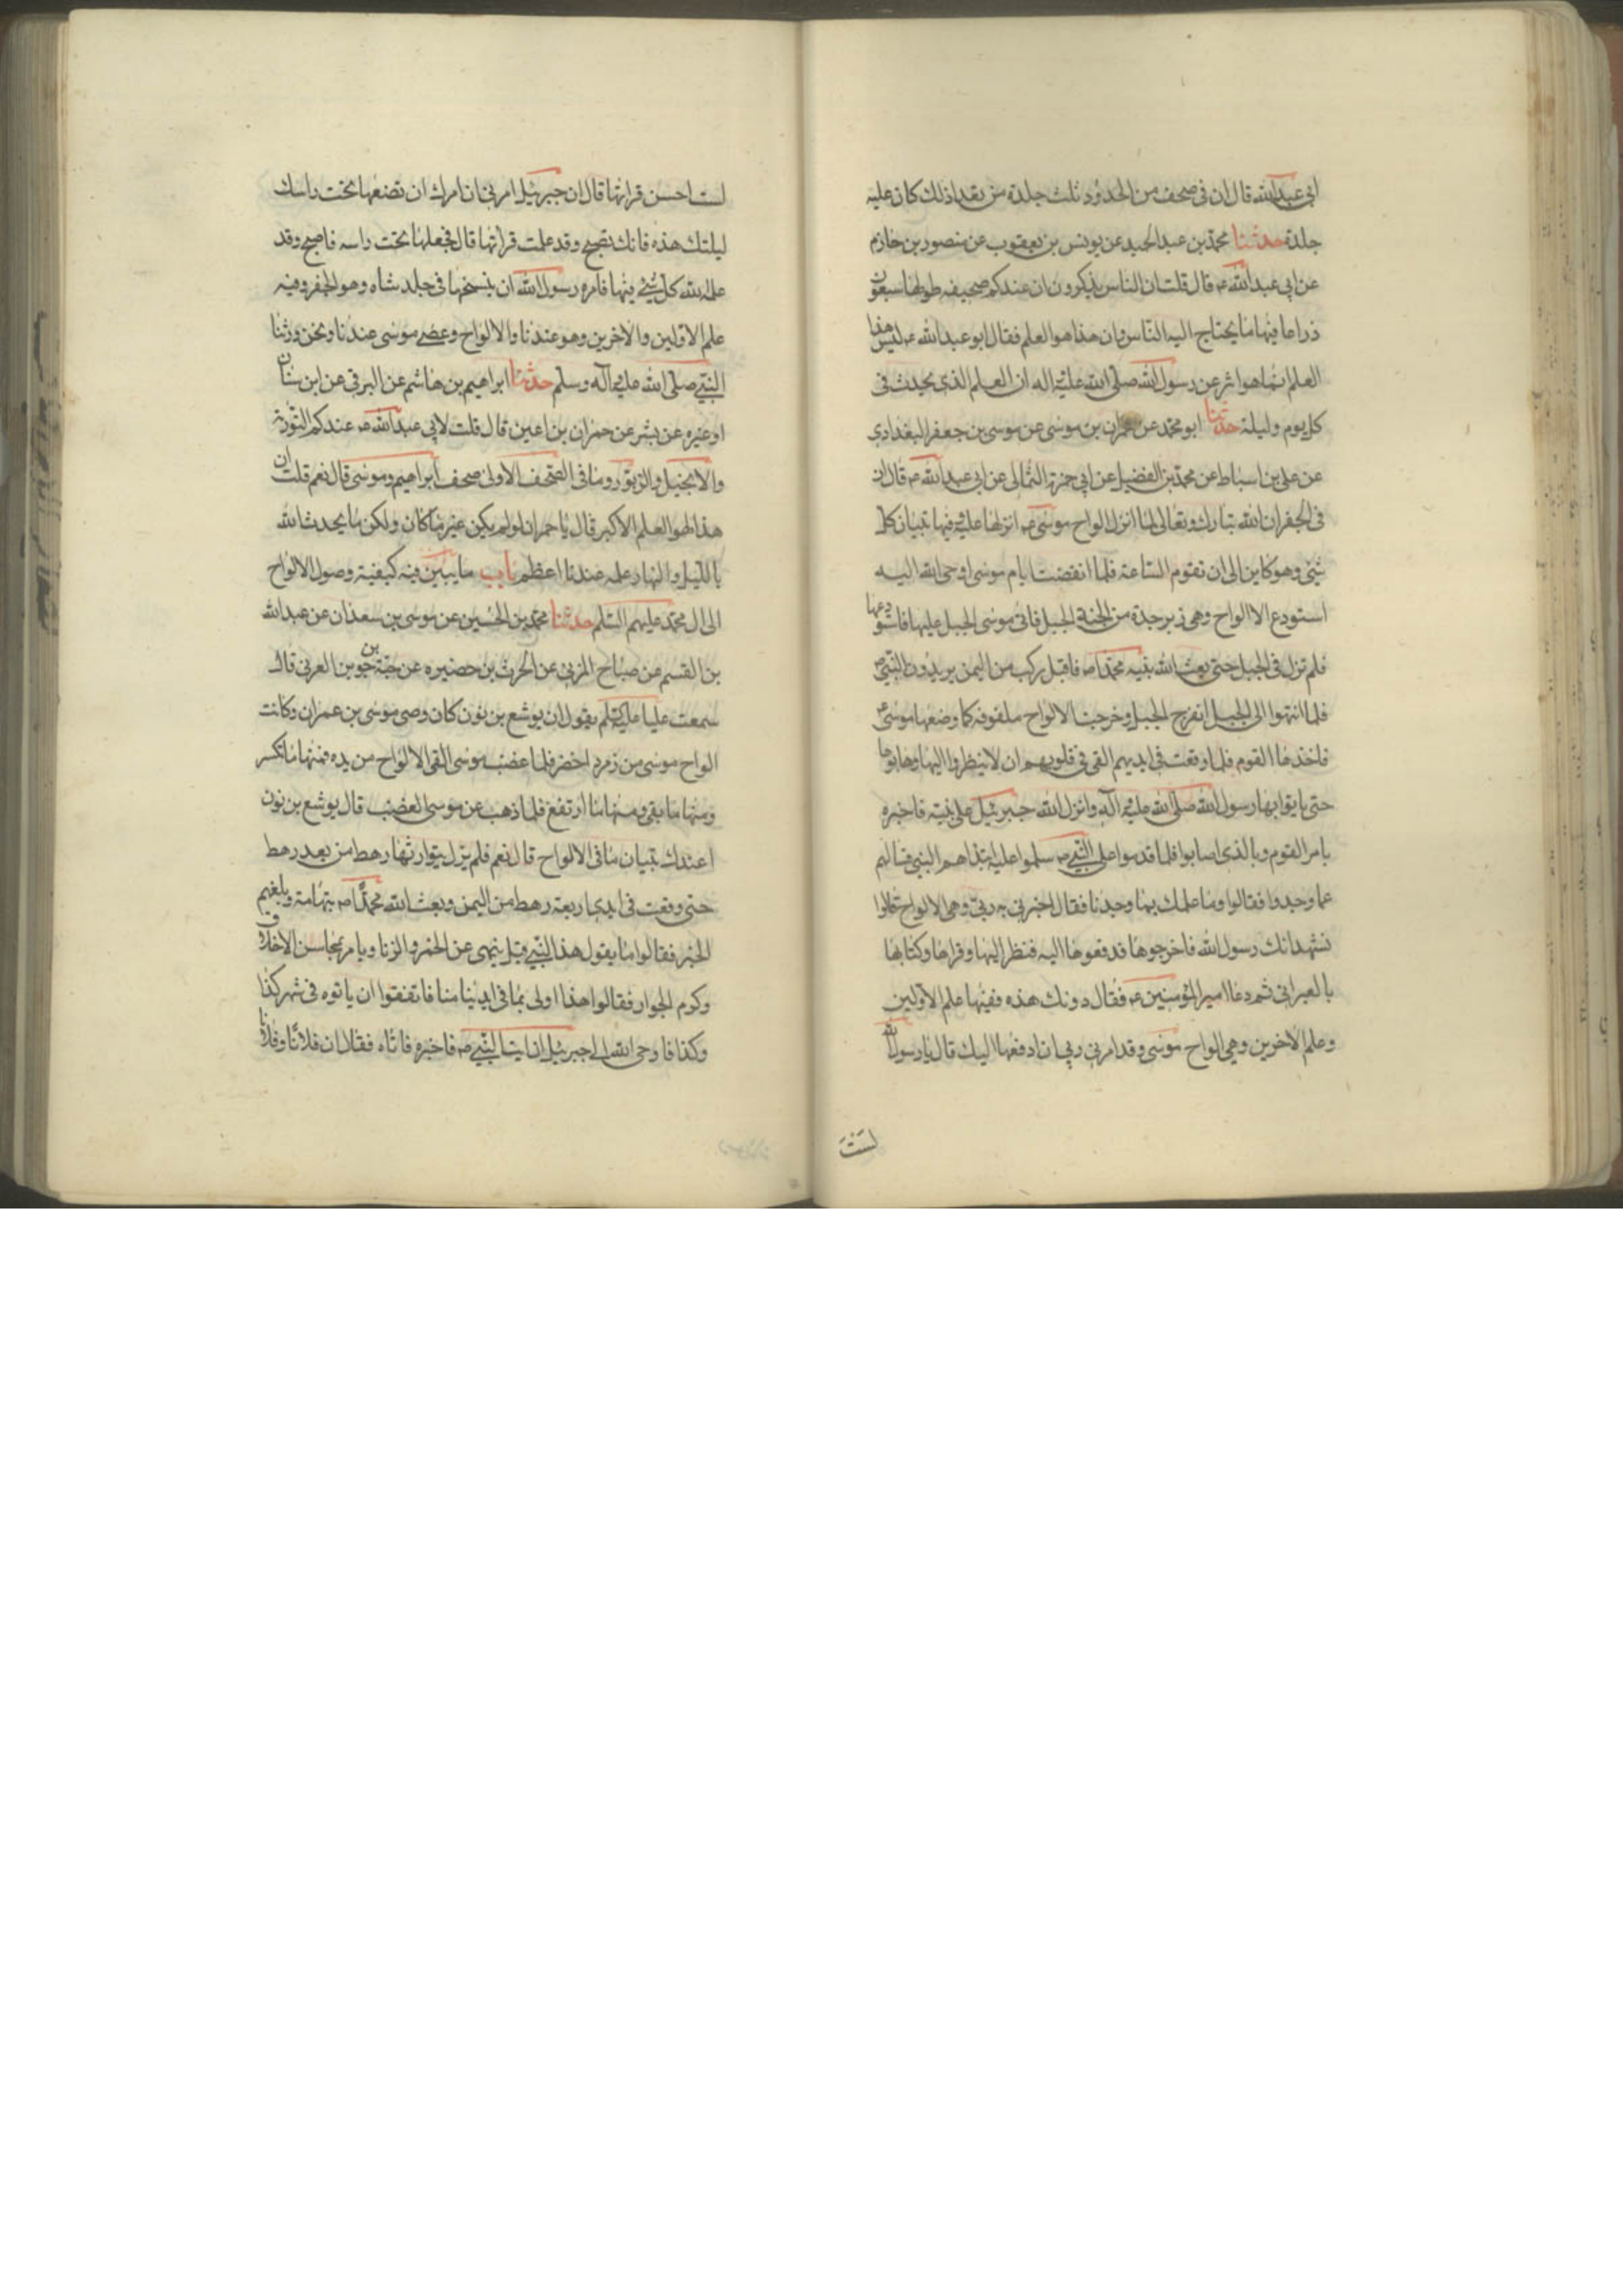 ابی عبدالله قال ان فی صحف من الحدود ثلث جلدة من تعدا ذلك كان علیه
جلدة حدثنا محمد بن عبدالحمید عن یونس بن یعقوب عن منصور بن خازم
عن ابی عبدالله ع قال قلت ان الناس یذكرون ان عندكم صحیفه طولها سبعون
ذراعا فیها ما یحتاج الیه الناس وان هذا هو العلم فقال ابو عبدالله ع لیس هذا
العلم انما هو اثر عن رسول الله صلی الله علیه اله ان العلم الذی یحدث فی
كل یوم ولیلة حدثنا ابو محمد عن عمران بن موسی عن موسی بن جعفر البغدادی
عن علی بن اسباط عن محمد بن الفضیل عن ابی حمزة الثمالی عن ابی عبدالله ع قال ان
فی الجفر ان الله تبارك وتعالی لما انزل الواح موسی ع انزلها علیه فیها تبیان كل
شیئ وهو كاین الی ان تقوم الساعة فلما انقضت ایام موسی اوحی الله الیه
استودع الا الواح وهی زبرجدة من الجنة الجبل فاتی موسی الجبل علیها فاستودعها
فلم تزل فی الجبل حتی بعث الله نبیه محمدا ص فاقبل ركب من الیمن یریدون النبی ص
فلما انتهوا الی الجبل انفرج الجبل وخرجت الالواح ملفوفه كما وضعها موسی ع
فاخذها القوم فلما وقعت فی ایدیهم القی فی قلوبهم ان لا ینظروا الیها وهابوها
حتی یاتوا بها رسول الله صلی الله علیه آله وانزل الله جبرئیل علی نبیه فاخبره
بامر القوم وبالذی اصابوا فلما قدموا علی النبی ص سلموا علیه ابتداهم النبی فسالهم
عما وجدوا فقالوا وما علمك بما وجدنا فقال اخبرنی به ربی وهی الالواح قالوا
نشهد انك رسول الله فاخرجوها فدفعوها الیه فنظر الیها وقراها وكتابها
بالعبرانی ثم دعا امیر المؤمنین ع فقال دونك هذه ففیها علم الاولین
وعلم الاخرین وهی الواح موسی وقد امرنی ربی ان ادفعها الیك قال یا رسول الله
لست
لست احسن قرائتها قال ان جبرئیل امرنی ان امرك ان تضعها تحت راسك
لیلتك هذه فانك تصبح وقد علمت قرائتها قال فجعلها تحت راسه فاصبح وقد
علمه الله كل شیئ فیها فامره رسول الله ان ینسخها فی جلد شاه وهو الجفر وفیه
علم الاولین والاخرین وهو عندنا والالواح وعصی موسی عندنا ونحن ورثنا
النبی صلی الله علیه آله وسلم حدثنا ابراهیم بن هاشم عن البرقی عن ابن سنان
او غیره عن بشر عن حمران بن اعین قال قلت لابی عبدالله ع عندكم التوریة
والانجیل والزبور وما فی الصحف الاولی صحف ابراهیم وموسی قال نعم قلت ان
هذا لهو العلم الاكبر قال یا حمران لو لم یكن غیر ما كان ولكن ما یحدث الله
باللیل والنهار علمه عندنا اعظم باب ما یبین فیه كیفیة وصول الالواح
الی ال محمد علیهم السلم حدثنا محمد بن الحسین عن موسی بن سعدان عن عبدالله
بن القسم عن صباح المزنی عن الحرث بن حضیره عن حبة بن جوین العرنی قال
سمعت علیا علیه السلم یقول ان یوشع بن نون كان وصی موسی بن عمران وكانت
الواح موسی من زمرد اخضر فلما غضب موسی القی الالواح من یده فمنها ما تكسر
ومنها ما بقی ومنها ما ارتفع فلما ذهب عن موسی الغضب قال یوشع بن نون
اعندك تبیان ما فی الالواح قال نعم فلم یزل یتوارثها رهط من بعد رهط
حتی وقعت فی ایدی اربعة رهط من الیمن وبعث الله محمدا ص بتهامة وبلغهم
الخبر فقالوا ما یقول هذا النبی قیل ینهی عن الخمر والزنا ویامر بمحاسن الاخلاق
وكرم الجوار فقالوا هذا اولی بما فی ایدینا منا فاتفقوا ان یاتوه فی شهر كذا
وكذا فاوحی الله الی جبرئیل ان ایت النبی ص فاخبره فاتاه فقال ان فلانا وفلانا